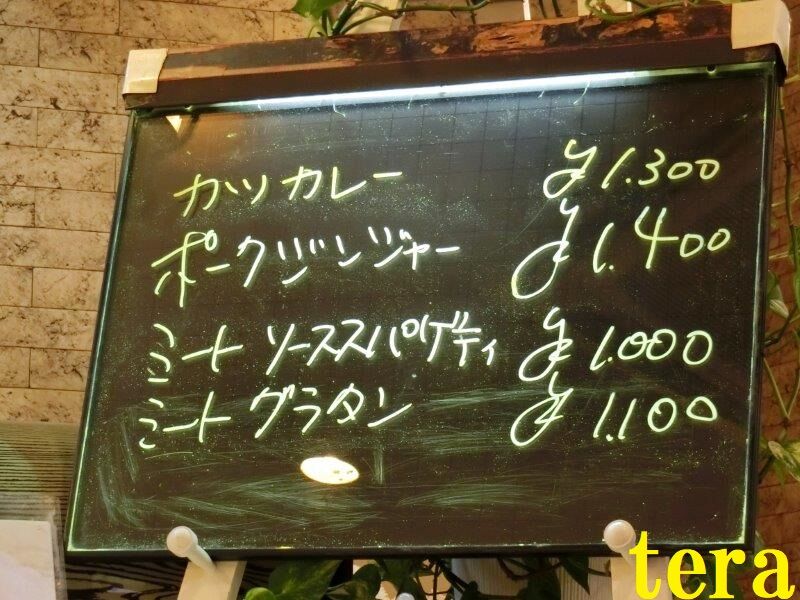 カツカレー ¥1.300
ポークジンジャー ¥1.400
ミートソーススパゲティ ¥1.000
ミートグラタン ¥1.100
tera